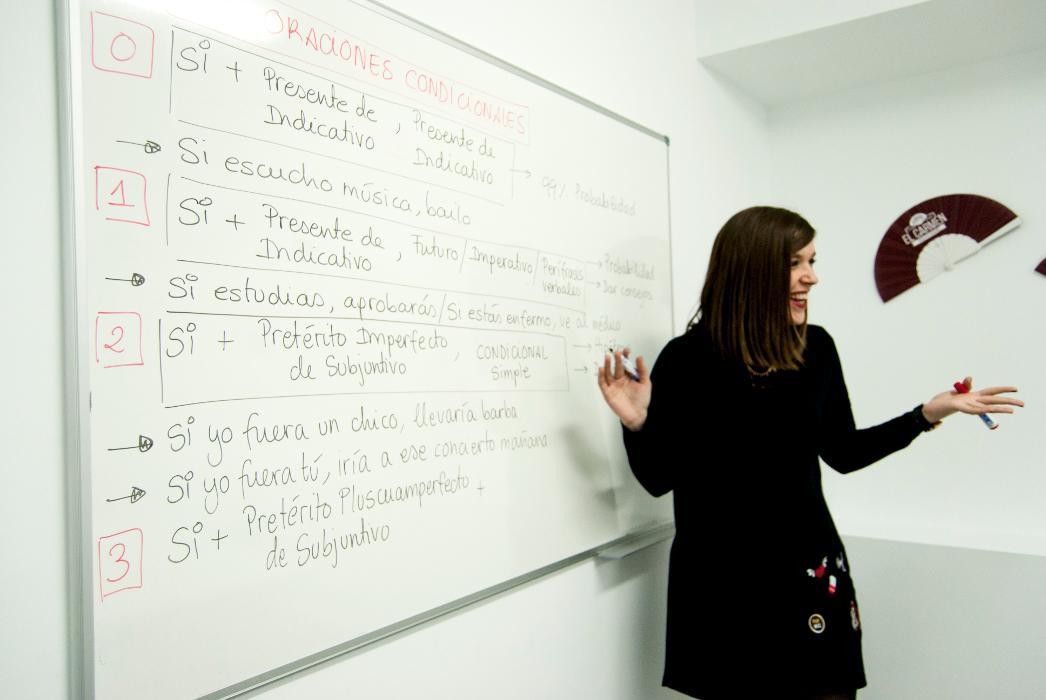 ORACIONES CONDICIONALES
0 Si + Presente de Indicativo, Presente de Indicativo → 99% Probabilidad
Si escucho música, bailo
1 Si + Presente de Indicativo, Futuro/Imperativo/Perífrasis verbales → Probabilidad → Dar consejos
Si estudias, aprobarás/Si estás enfermo, ve al médico
2 Si + Pretérito Imperfecto de Subjuntivo, CONDICIONAL Simple
Si yo fuera un chico, llevaría barba
Si yo fuera tú, iría a ese concierto mañana
3 Si + Pretérito Pluscuamperfecto de Subjuntivo +
EL CARMEN